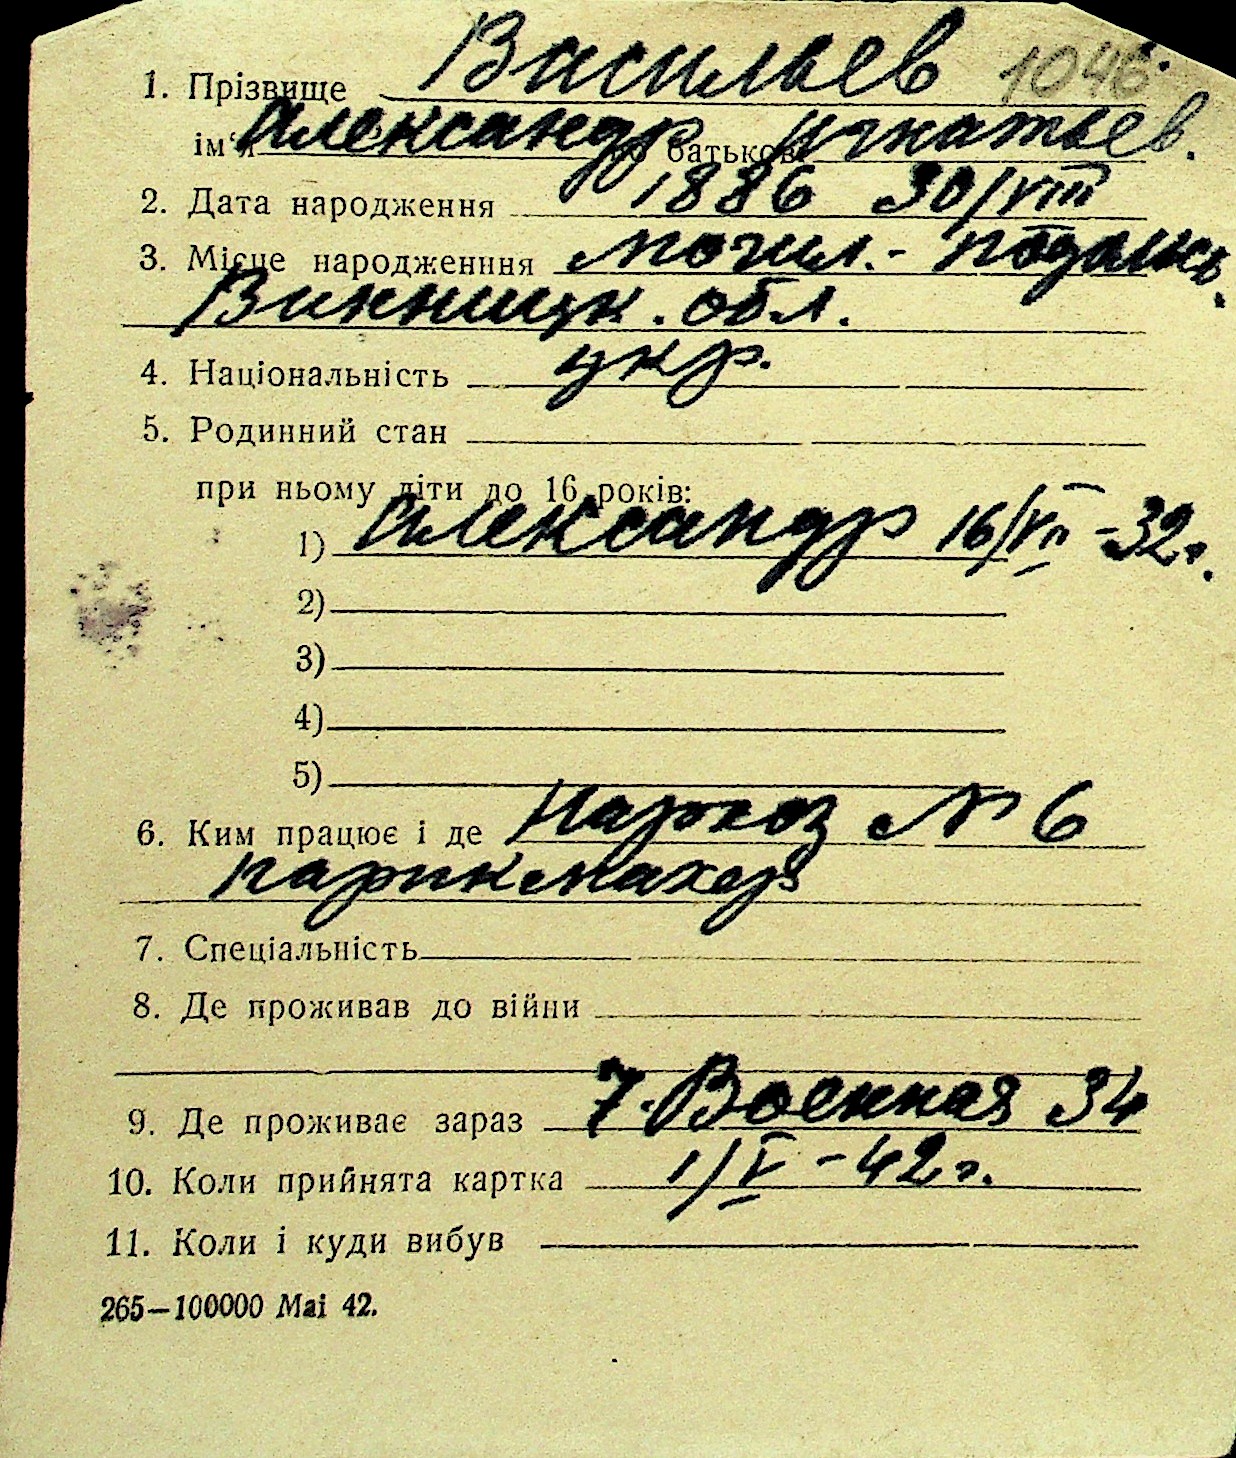 1. Прізвище Васильев 1046
ім'я Александр по батькові Игнатьев.
2. Дата народження 1886 30/VIII
3. Місце народженння Могил.-Подольск.
Винницк. обл.
4. Національність укр.
5. Родинний стан
при ньому діти до 16 років:
1) Александр 16/VII-32г.
2)
3)
4)
5)
6. Ким працює і де № 6
парикмахер
7. Спеціальність
8. Де проживав до війни
9. Де проживає зараз 7. Военная 34
10. Коли прийнята картка 1/V-42г.
11. Коли і куди вибув
265—100000 Mai 42.